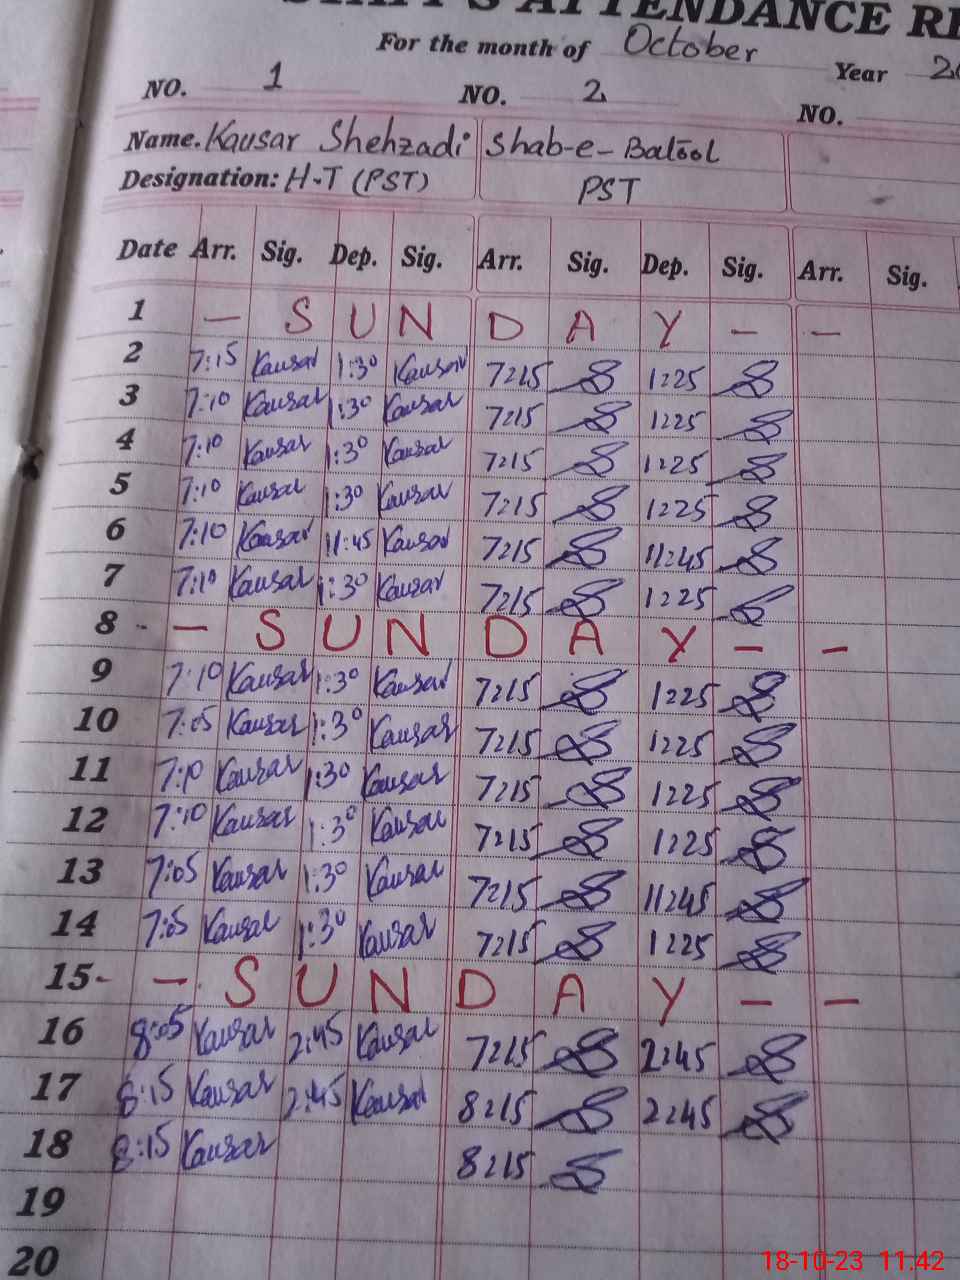 STAFF'S ATTENDANCE RE
For the month of October
Year 20
NO. 1 NO. 2 NO.
Name. Kausar Shehzadi Shab-e-Batool
Designation: H-T (PST) PST
Date Arr. Sig. Dep. Sig. Arr. Sig. Dep. Sig. Arr. Sig.
1 - S U N D A Y - -
2 7:15 Kausar 1:30 Kausar 7:15 1:25
3 7:10 Kausar 1:30 Kausar 7:15 1:25
4 7:10 Kausar 1:30 Kausar 7:15 1:25
5 7:10 Kausar 1:30 Kausar 7:15 1:25
6 7:10 Kausar 11:45 Kausar 7:15 11:45
7 7:10 Kausar 1:30 Kausar 7:15 1:25
8 - - S U N D A Y - -
9 7:10 Kausar 1:30 Kausar 7:15 1:25
10 7:05 Kausar 1:30 Kausar 7:15 1:25
11 7:10 Kausar 1:30 Kausar 7:15 1:25
12 7:10 Kausar 1:30 Kausar 7:15 1:25
13 7:05 Kausar 1:30 Kausar 7:15 11:45
14 7:05 Kausar 1:30 Kausar 7:15 1:25
15 - - S U N D A Y - -
16 8:05 Kausar 2:45 Kausar 7:15 2:45
17 8:15 Kausar 2:45 Kausar 8:15 2:45
18 8:15 Kausar 8:15
19
20
18-10-23 11.42